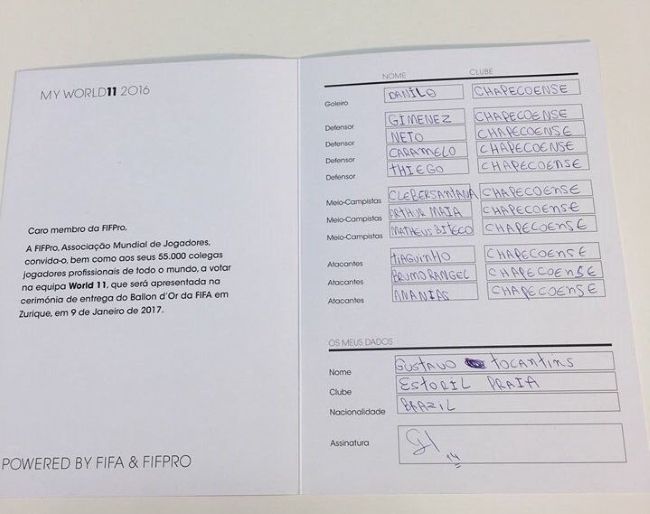 MY WORLD11 2016
Caro membro da FIFPro,
A FIFPro, Associação Mundial de Jogadores,
convida-o, bem como aos seus 55.000 colegas
jogadores profissionais de todo o mundo, a votar
na equipa World 11, que será apresentada na
cerimónia de entrega do Ballon d'Or da FIFA em
Zurique, em 9 de Janeiro de 2017.
POWERED BY FIFA & FIFPRO
NOME CLUBE
Goleiro DANILO CHAPECOENSE
Defensor GIMENEZ CHAPECOENSE
Defensor NETO CHAPECOENSE
Defensor CARAMELO CHAPECOENSE
Defensor THIEGO CHAPECOENSE
Meio-Campistas CLEBERSANTANA CHAPECOENSE
Meio-Campistas ARTHUR MAIA CHAPECOENSE
Meio-Campistas MATHEUS BITECO CHAPECOENSE
Atacantes TIAGUINHO CHAPECOENSE
Atacantes BRUNO RANGEL CHAPECOENSE
Atacantes ANANIAS CHAPECOENSE
OS MEUS DADOS
Nome GUSTAVO TOCANTINS
Clube ESTORIL PRAIA
Nacionalidade BRAZIL
Assinatura